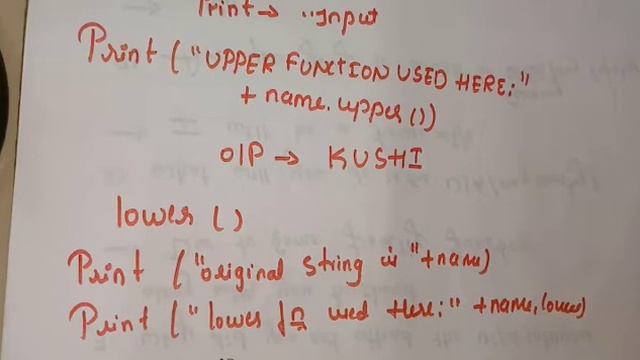 Print → "Input
Print ("UPPER FUNCTION USED HERE:"
+ name.upper())
O/P → KUSHI
lower ()
Print ("original string is "+name)
Print ("lower fn used Here:" +name.lower)